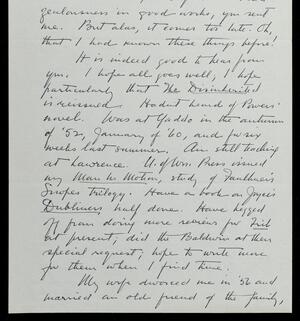 zealousness in good works, you sent
me. But alas, it comes too late. Oh
that I had known these things before!
It is indeed good to hear from
you. I hope all goes well, I hope
particularly that The Disinherited
is reissued. Hadn't heard of Powers'
novel. Was at Yaddo in the autumn
of '52, January of '60, and for six
weeks last summer. Am still teaching
at Lawrence. U. of Wis. Press issued
my Man in Motion, study of Faulkner's
Snopes trilogy. Have a book on Joyce's
Dubliners half done. Have begged
off from doing more reviews for
at present, did the Baldwin at their
special request; hope to write more
for them when I find time.
My wife divorced me in '56 and
married an old friend of the family,